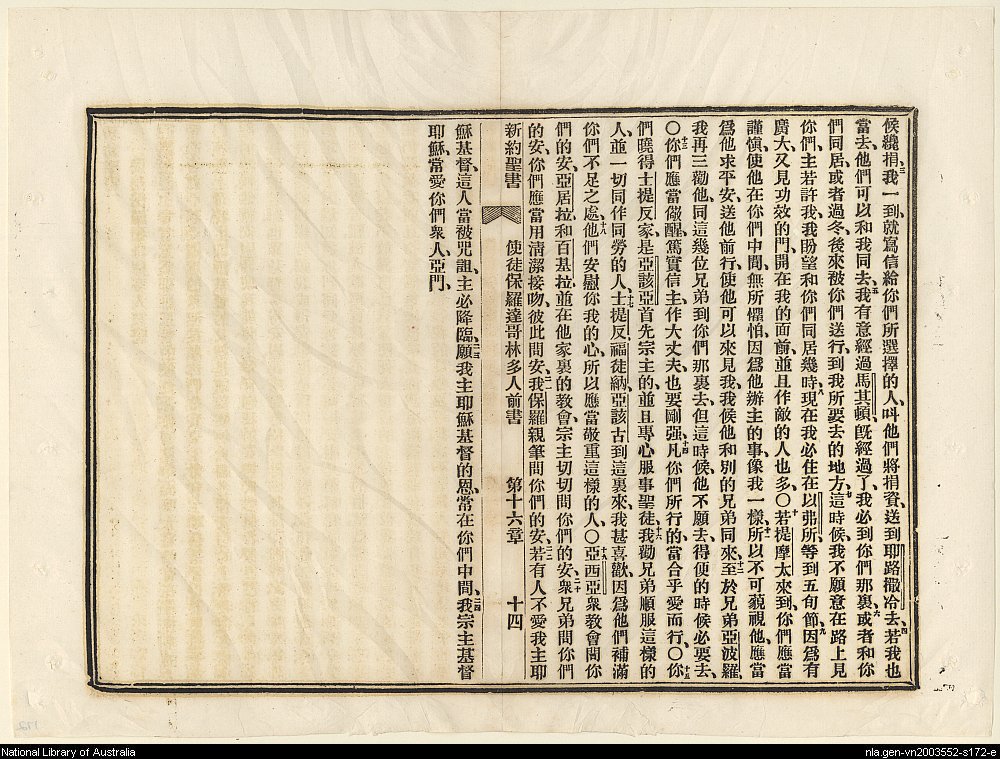 候纔捐、三我一到、就寫信給你們所選擇的人、叫他們將捐資、送到耶路撒冷去、四若我也
當去、他們可以和我同去、五我有意經過馬其頓、旣經過了、我必到你們那裏、六或者和你
們同居、或者過冬、後來被你們送行、到我所要去的地方、七這時候、我不願意在路上見
你們、主若許我、我盼望和你們同居幾時、八現在我必住在以弗所、等到五旬節、九因爲有
廣大、又見功效的門、開在我的面前、並且作敵的人也多、〇十若提摩太來到、你們應當
謹愼、使他在你們中間、無所懼怕、因爲他辦主的事、像我一樣、十一所以不可藐視他、應當
爲他求平安、送他前行、使他可以來見我、我候他和別的兄弟同來、十二至於兄弟亞波羅、
我再三勸他、同這幾位兄弟到你們那裏去、但這時候他不願去、得便的時候必要去、
〇十三你們應當儆醒、篤實信主、作大丈夫、也要剛强、十四凡你們所行的、當合乎愛而行、〇十五你
們曉得士提反家、是亞該亞首先宗主的、並且專心服事聖徒、十六我勸兄弟順服這樣的
人、並一切同作同勞的人、十七士提反、福徒納、亞該古到這裏來、我甚喜歡、因爲他們補滿
你們不足之處、十八他們安慰你我的心、所以應當敬重這樣的人、〇十九亞西亞衆教會問你
們的安、亞居拉和百基拉、並在他家裏的教會、宗主切切問你們的安、二十衆兄弟問你們
的安、你們應當用淸潔接吻、彼此問安、二一我保羅親筆問你們的安、二二若有人不愛我主耶
新約聖書 使徒保羅達哥林多人前書 第十六章 十四
穌基督、這人當被咒詛、主必降臨、二三願我主耶穌基督的恩、常在你們中間、二四我宗主基督
耶穌、當愛你們衆人、亞門、
National Library of Australia
nla.gen-vn2003552-s172-e